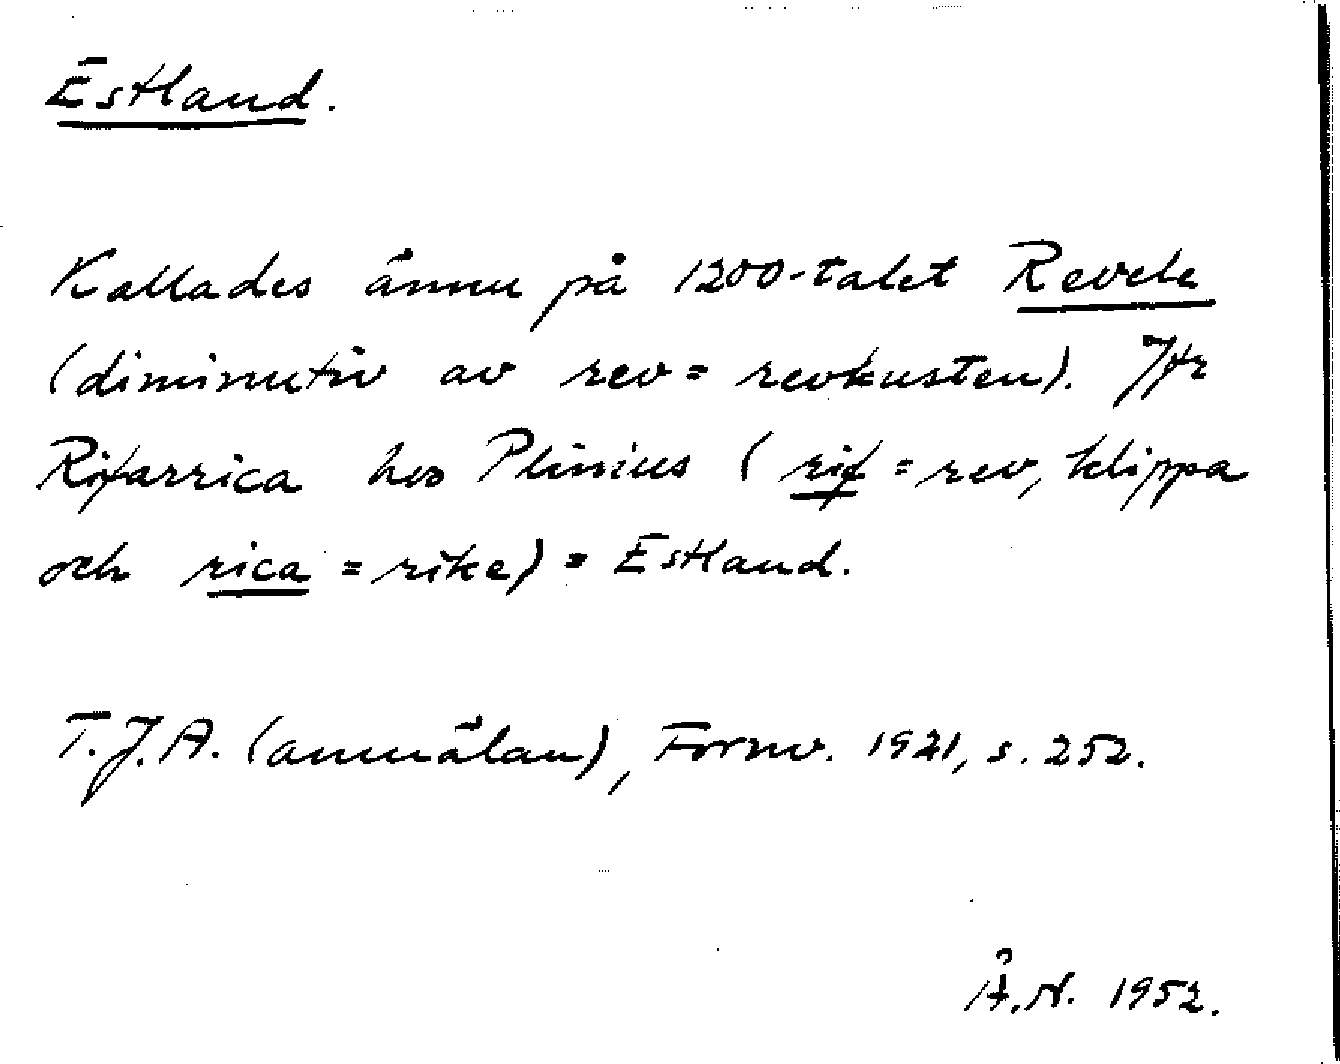 Estland.
Kallades ännu på 1200-talet Revele
(diminutiv av rev = revkusten). Jfr
Rifarrica hos Plinius (rif = rev, klippa
och rica = rike) = Estland.
T.J.A. (anmälan), Fornv. 1921, s. 252.
Å.N. 1952.